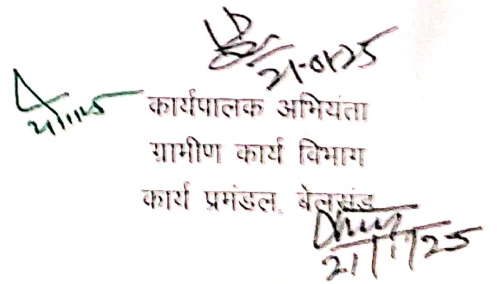 21-01-25
कार्यपालक अभियंता
ग्रामीण कार्य विभाग
कार्य प्रमंडल, बेलसंड
21/1/25